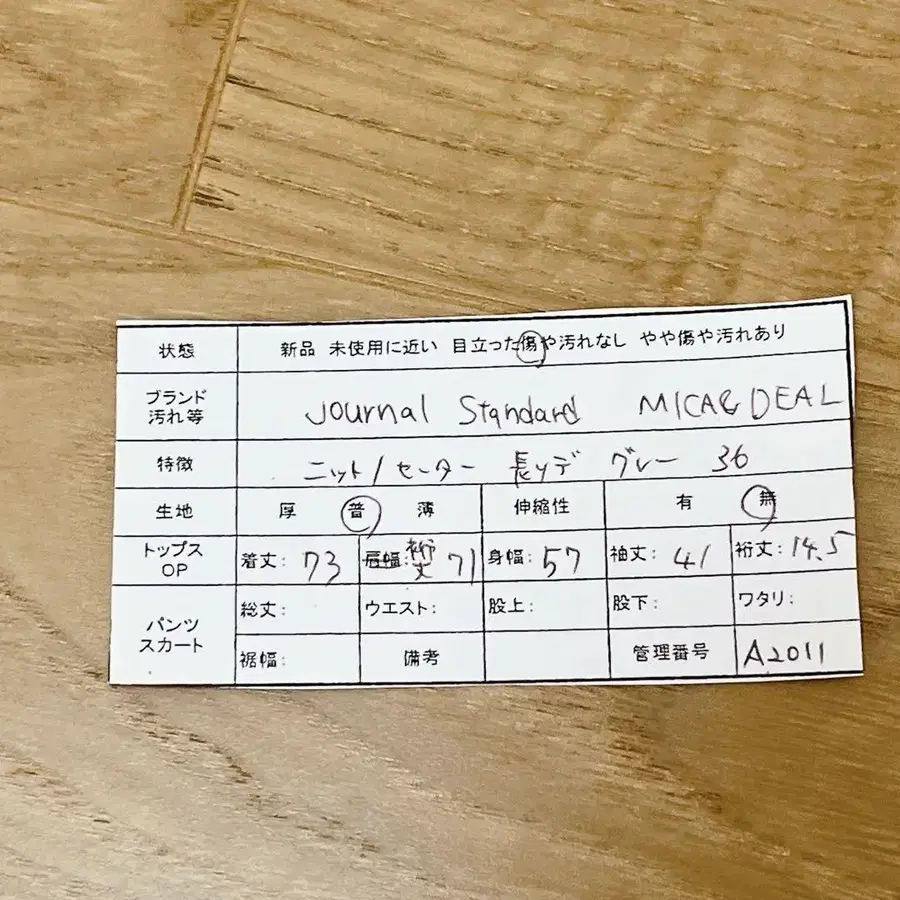 状態 新品 未使用に近い 目立った傷や汚れなし やや傷や汚れあり
ブランド
汚れ等 Journal Standard MICA&DEAL
特徴 ニット/セーター 長ソデ グレー 36
生地 厚 普 薄 伸縮性 有 無
トップス
OP 着丈: 73 肩幅: 裄丈 71 身幅: 57 袖丈: 41 裄丈: 14.5
パンツ
スカート 総丈: ウエスト: 股上: 股下: ワタリ:
裾幅: 備考 管理番号 A2011